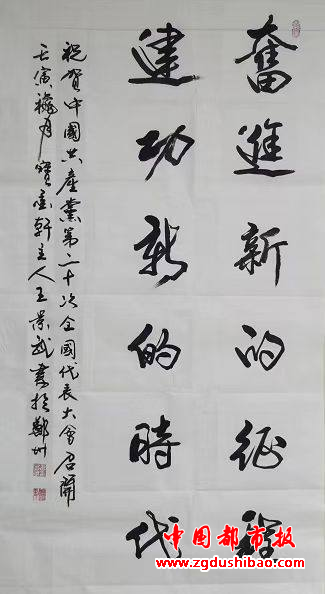 奮進新的征程
建功新的時代
祝賀中國共產黨第二十次全國代表大會召開
壬寅穐月寶軒主人王景武書於鄭州
中国都市报
www.zgdushibao.com